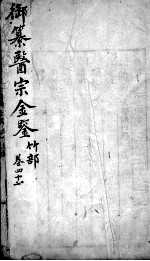 御纂醫宗金鑒
竹部
卷四十